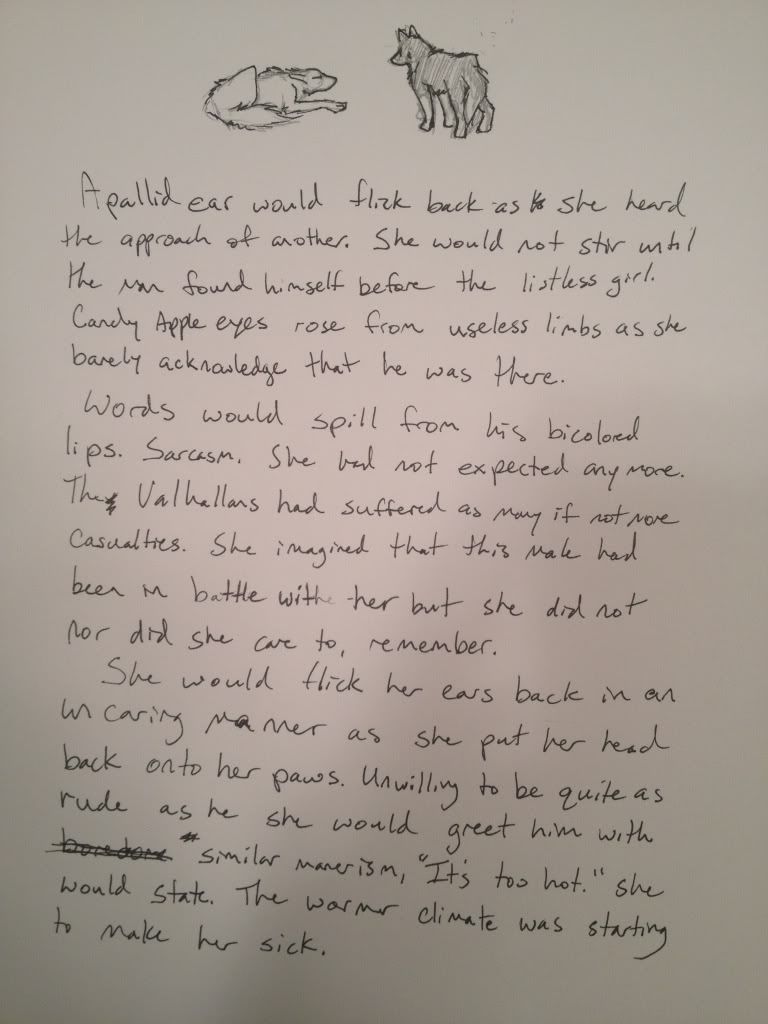 A pallid ear would flick back as she heard
the approach of another. She would not stir until
the man found himself before the listless girl.
Candy Apple eyes rose from useless limbs as she
barely acknowledge that he was there.
Words would spill from his bicolored
lips. Sarcasm. She had not expected any more.
The Valhallans had suffered as many if not more
casualties. She imagined that this male had
been in battle with her but she did not
nor did she care to, remember.
She would flick her ears back in an
un caring manner as she put her head
back onto her paws. Unwilling to be quite as
rude as he she would greet him with
boredom similar manerism, "It's too hot." she
would state. The warmer climate was starting
to make her sick.